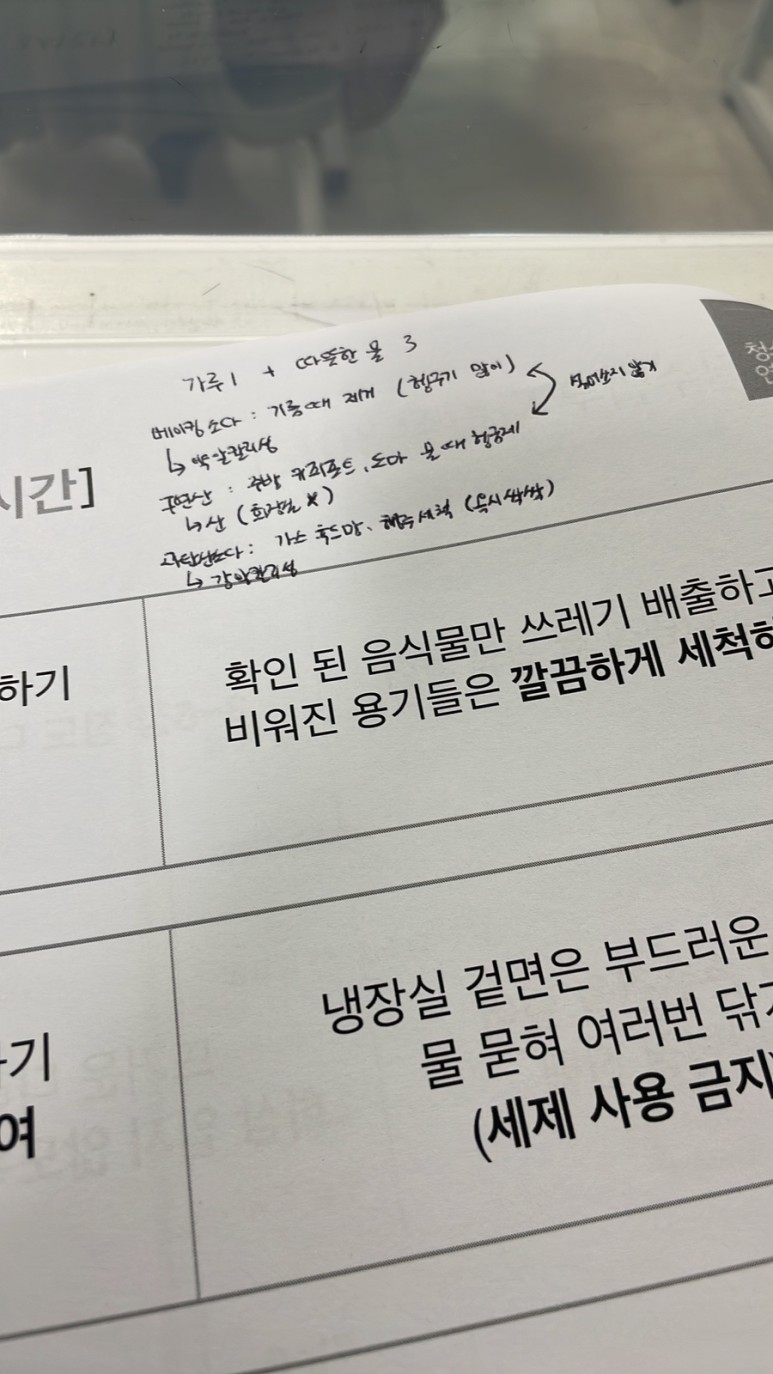 가루 1 + 따뜻한 물 3
베이킹소다 : 기름때 제거 (헹구기 많이)
섞어쓰지 않기
↳ 약알칼리성
구연산 : 주방 커피포트, 도마 물때 헹굼제
↳ 산 (화장실 X)
과탄산소다 : 가스 후드망, 행주세척 (욕실싹싹)
↳ 강알칼리성
청
연
시간]
하기
확인 된 음식물만 쓰레기 배출하고
비워진 용기들은 깔끔하게 세척하
냉장실 겉면은 부드러운
물 묻혀 여러번 닦기
(세제 사용 금지)
기
여